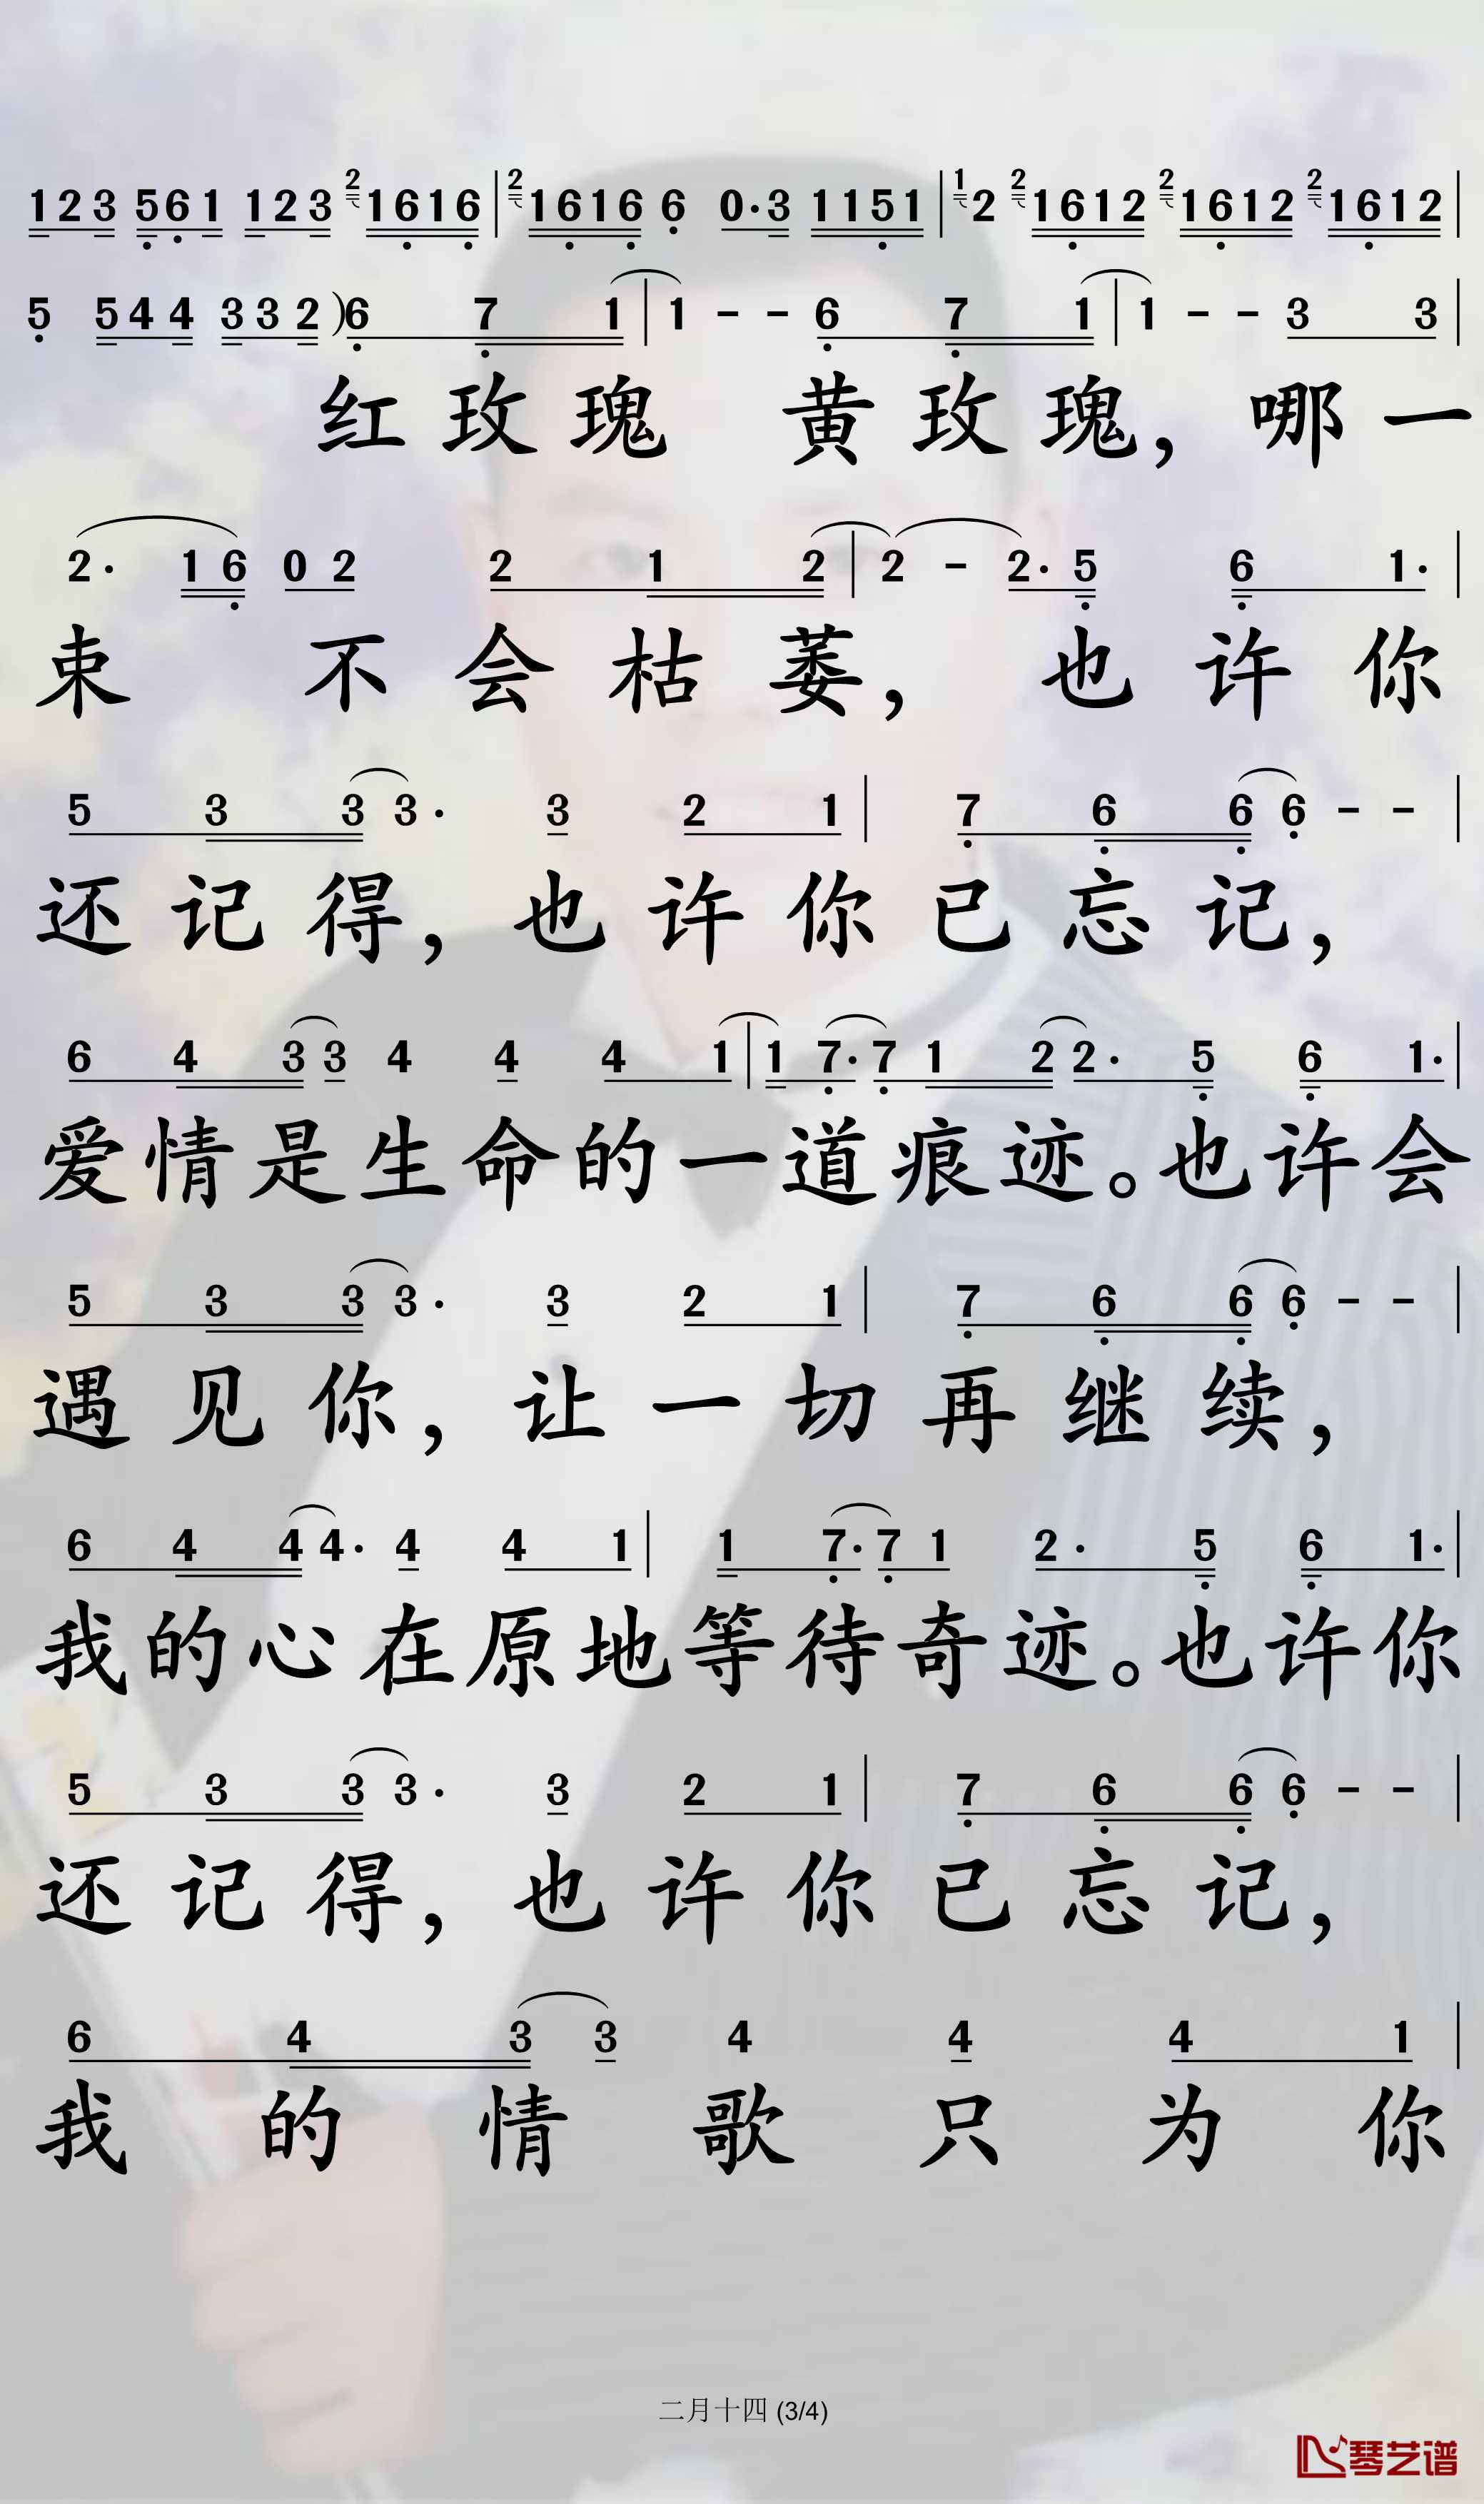 123 561 123 2 1616 | 2 1616 6 0·3 1151 | 1 2 2 1612 2 1612 2 1612 |
5 544 332 ) 6 7 1 | 1 - - 6 7 1 | 1 - - 3 3 |
红玫瑰 黄玫瑰，哪一
2· 1 6 0 2 2 1 2 | 2 - 2· 5 6 1· |
束 不会枯萎， 也许你
5 3 3 3· 3 2 1 | 7 6 6 6 - - |
还记得，也许你已忘记，
6 4 3 3 4 4 4 1 | 1 7· 7 1 2 2· 5 6 1· |
爱情是生命的一道痕迹。也许会
5 3 3 3· 3 2 1 | 7 6 6 6 - - |
遇见你，让一切再继续，
6 4 4 4· 4 4 1 | 1 7· 7 1 2· 5 6 1· |
我的心在原地等待奇迹。也许你
5 3 3 3· 3 2 1 | 7 6 6 6 - - |
还记得，也许你已忘记，
6 4 3 3 4 4 4 1 |
我的情歌只为你
二月十四 (3/4)
琴艺谱